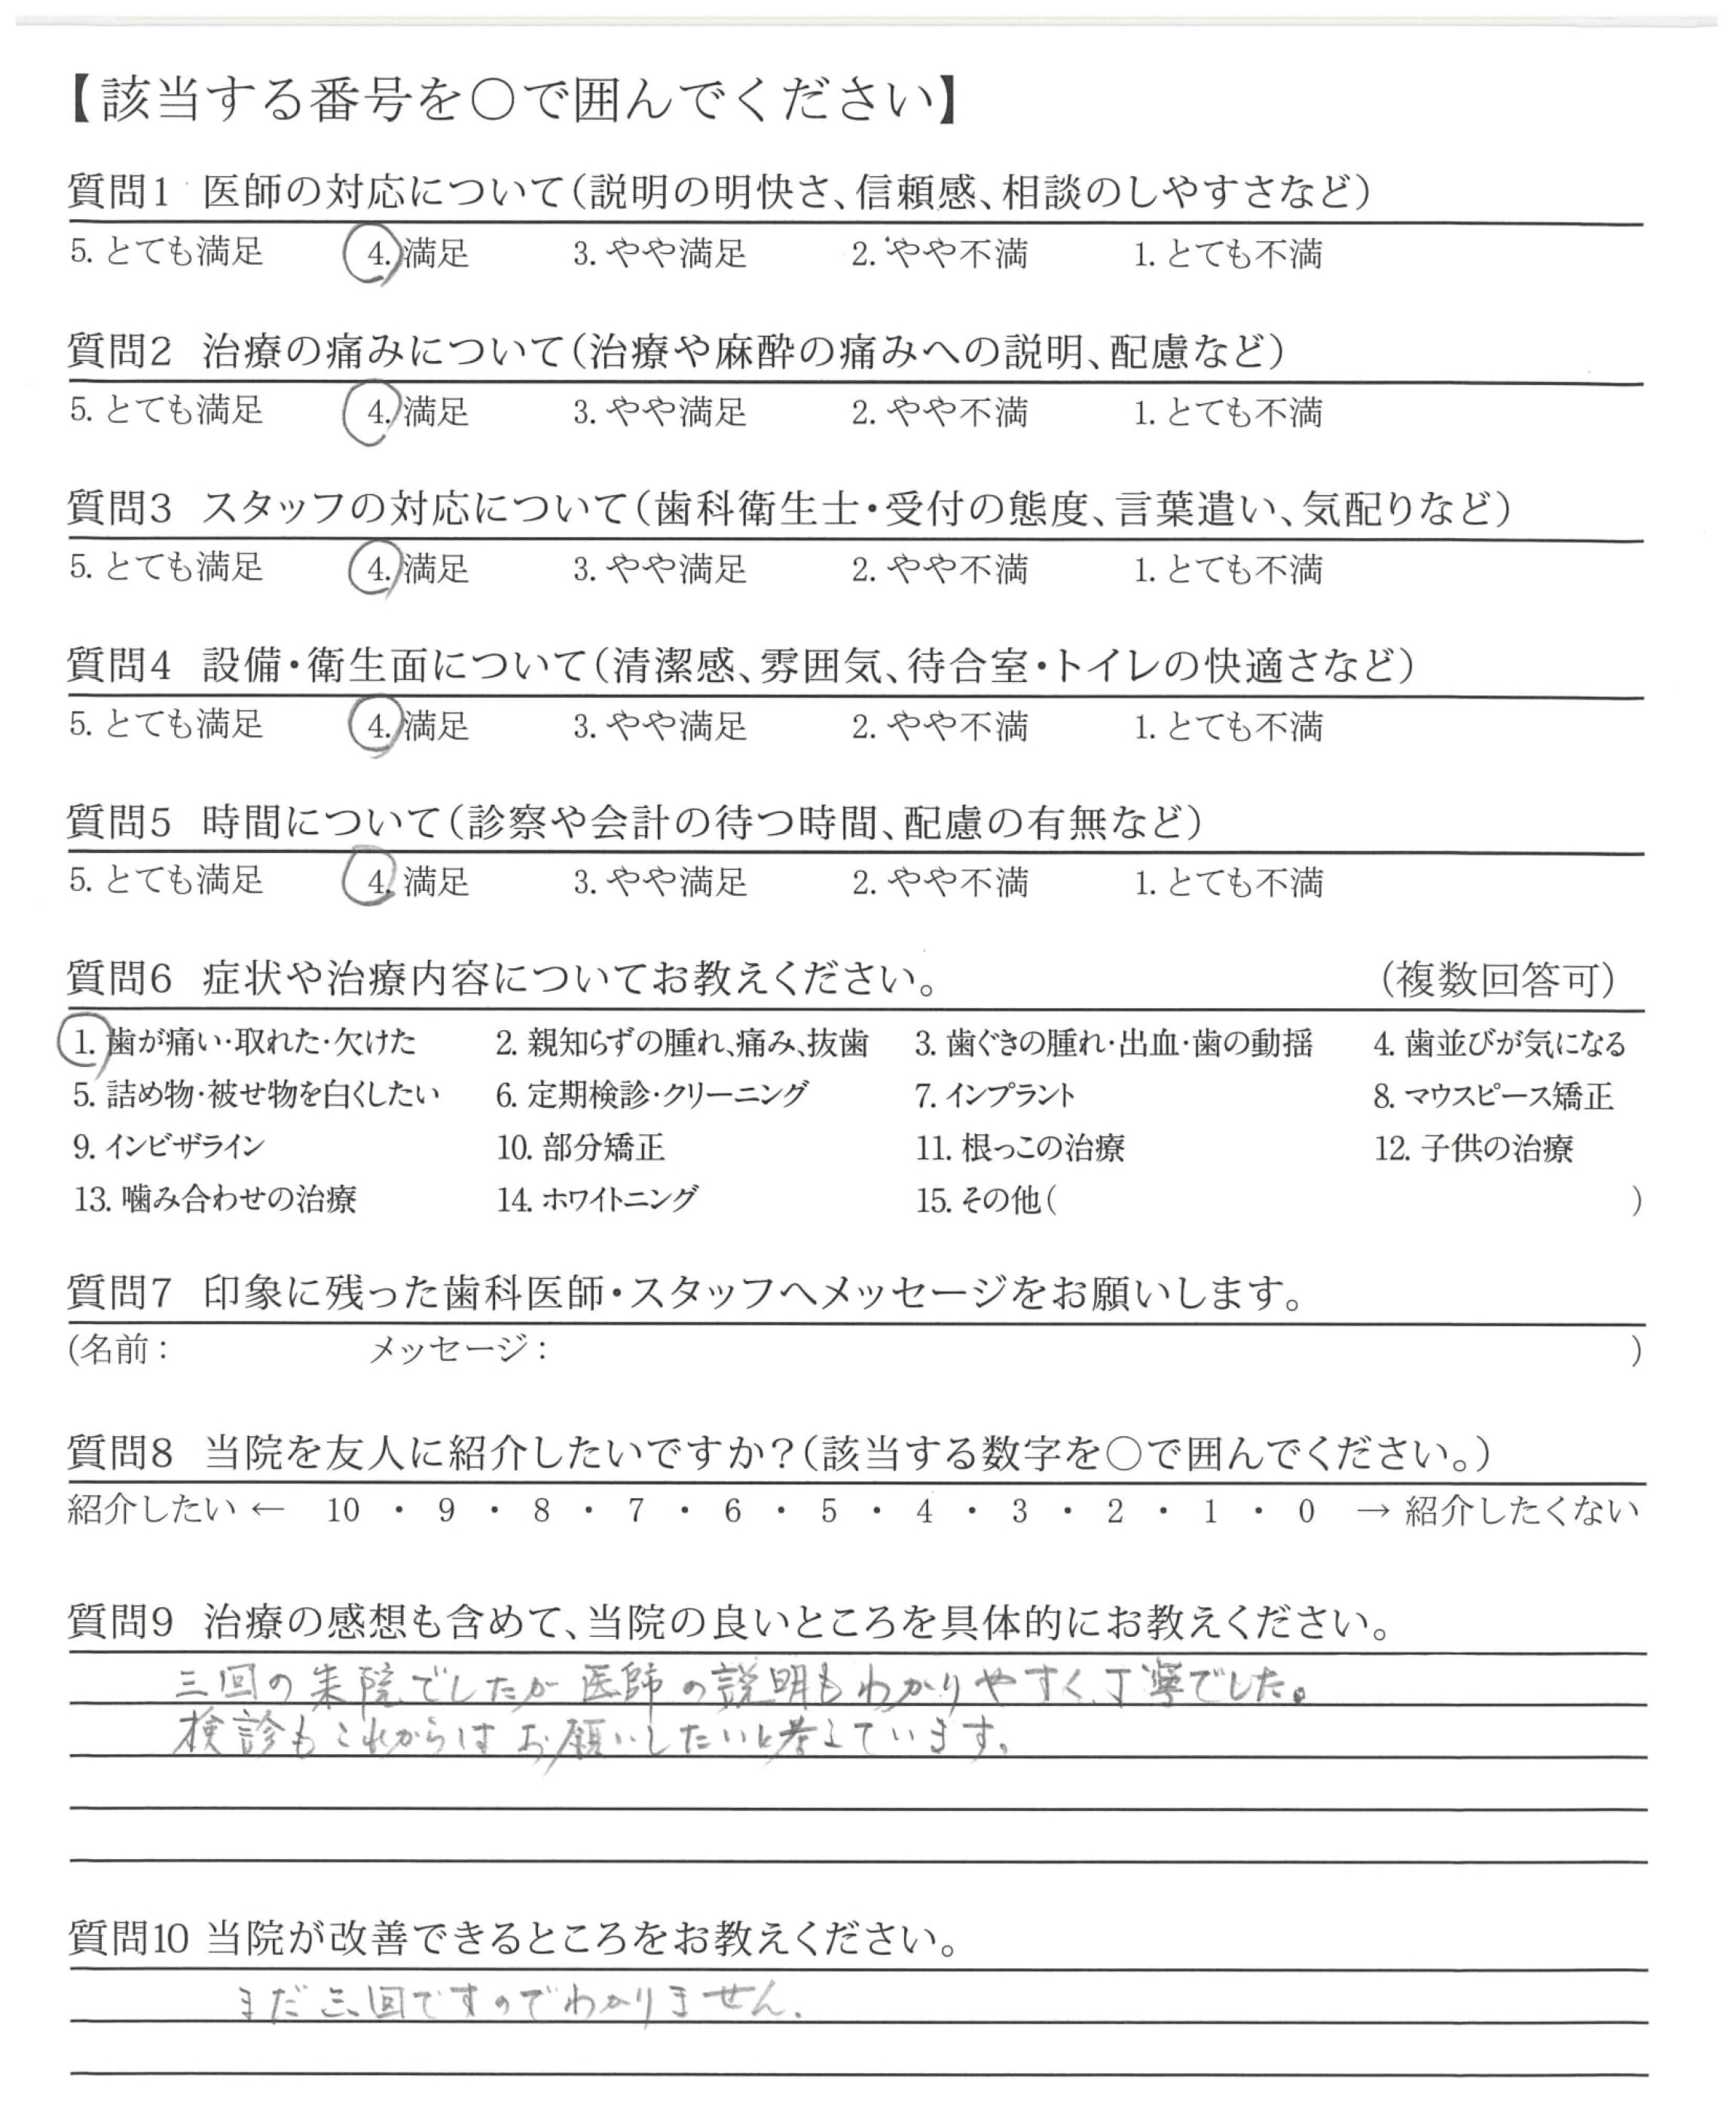 【該当する番号を○で囲んでください】
質問1 医師の対応について(説明の明快さ、信頼感、相談のしやすさなど)
5. とても満足 4. 満足 3. やや満足 2. やや不満 1. とても不満
質問2 治療の痛みについて(治療や麻酔の痛みへの説明、配慮など)
5. とても満足 4. 満足 3. やや満足 2. やや不満 1. とても不満
質問3 スタッフの対応について(歯科衛生士・受付の態度、言葉遣い、気配りなど)
5. とても満足 4. 満足 3. やや満足 2. やや不満 1. とても不満
質問4 設備・衛生面について(清潔感、雰囲気、待合室・トイレの快適さなど)
5. とても満足 4. 満足 3. やや満足 2. やや不満 1. とても不満
質問5 時間について(診察や会計の待つ時間、配慮の有無など)
5. とても満足 4. 満足 3. やや満足 2. やや不満 1. とても不満
質問6 症状や治療内容についてお教えください。 (複数回答可)
1. 歯が痛い・取れた・欠けた 2. 親知らずの腫れ、痛み、抜歯 3. 歯ぐきの腫れ・出血・歯の動揺 4. 歯並びが気になる
5. 詰め物・被せ物を白くしたい 6. 定期検診・クリーニング 7. インプラント 8. マウスピース矯正
9. インビザライン 10. 部分矯正 11. 根っこの治療 12. 子供の治療
13. 噛み合わせの治療 14. ホワイトニング 15. その他( )
質問7 印象に残った歯科医師・スタッフへメッセージをお願いします。
(名前: メッセージ: )
質問8 当院を友人に紹介したいですか?(該当する数字を○で囲んでください。)
紹介したい ← 10 ・ 9 ・ 8 ・ 7 ・ 6 ・ 5 ・ 4 ・ 3 ・ 2 ・ 1 ・ 0 → 紹介したくない
質問9 治療の感想も含めて、当院の良いところを具体的にお教えください。
三回の来院でしたが医師の説明もわかりやすく、丁寧でした。
検診もこれからはお願いしたいと考えています。
質問10 当院が改善できるところをお教えください。
まだ三回ですのでわかりません。